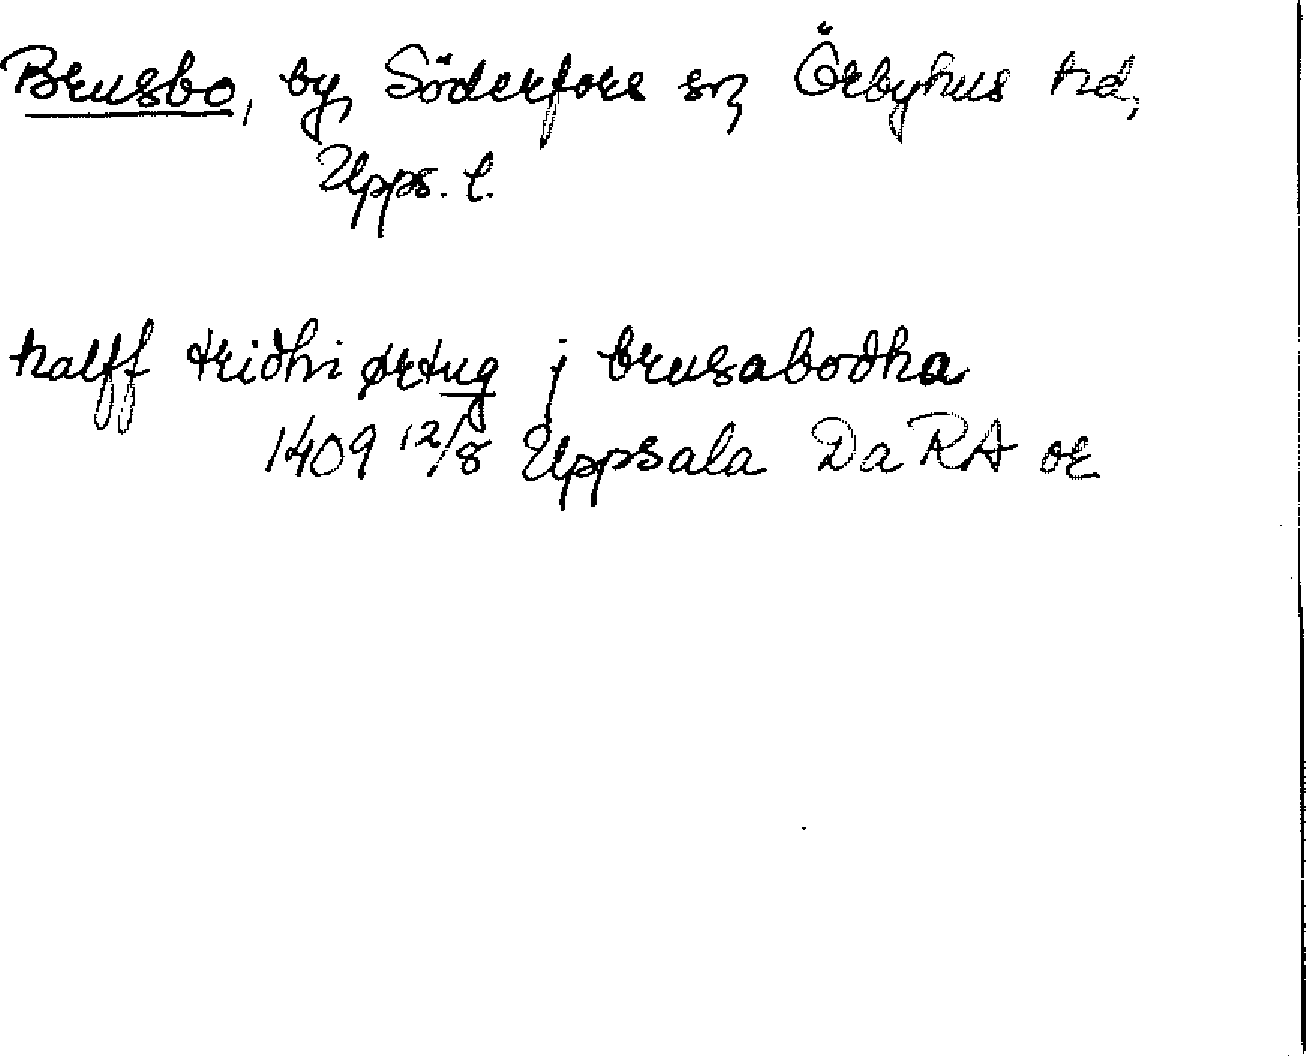 Brusbo, by, Söderfors sn, Örbyhus hd,
Upps. l.
halff tridhi ørtug j brusabodha
1409 12/8 Uppsala Da RA or